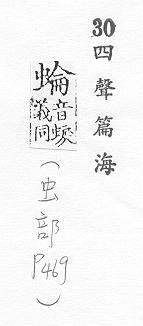 30四聲篇海
蜦
音
義同
（虫部P469）